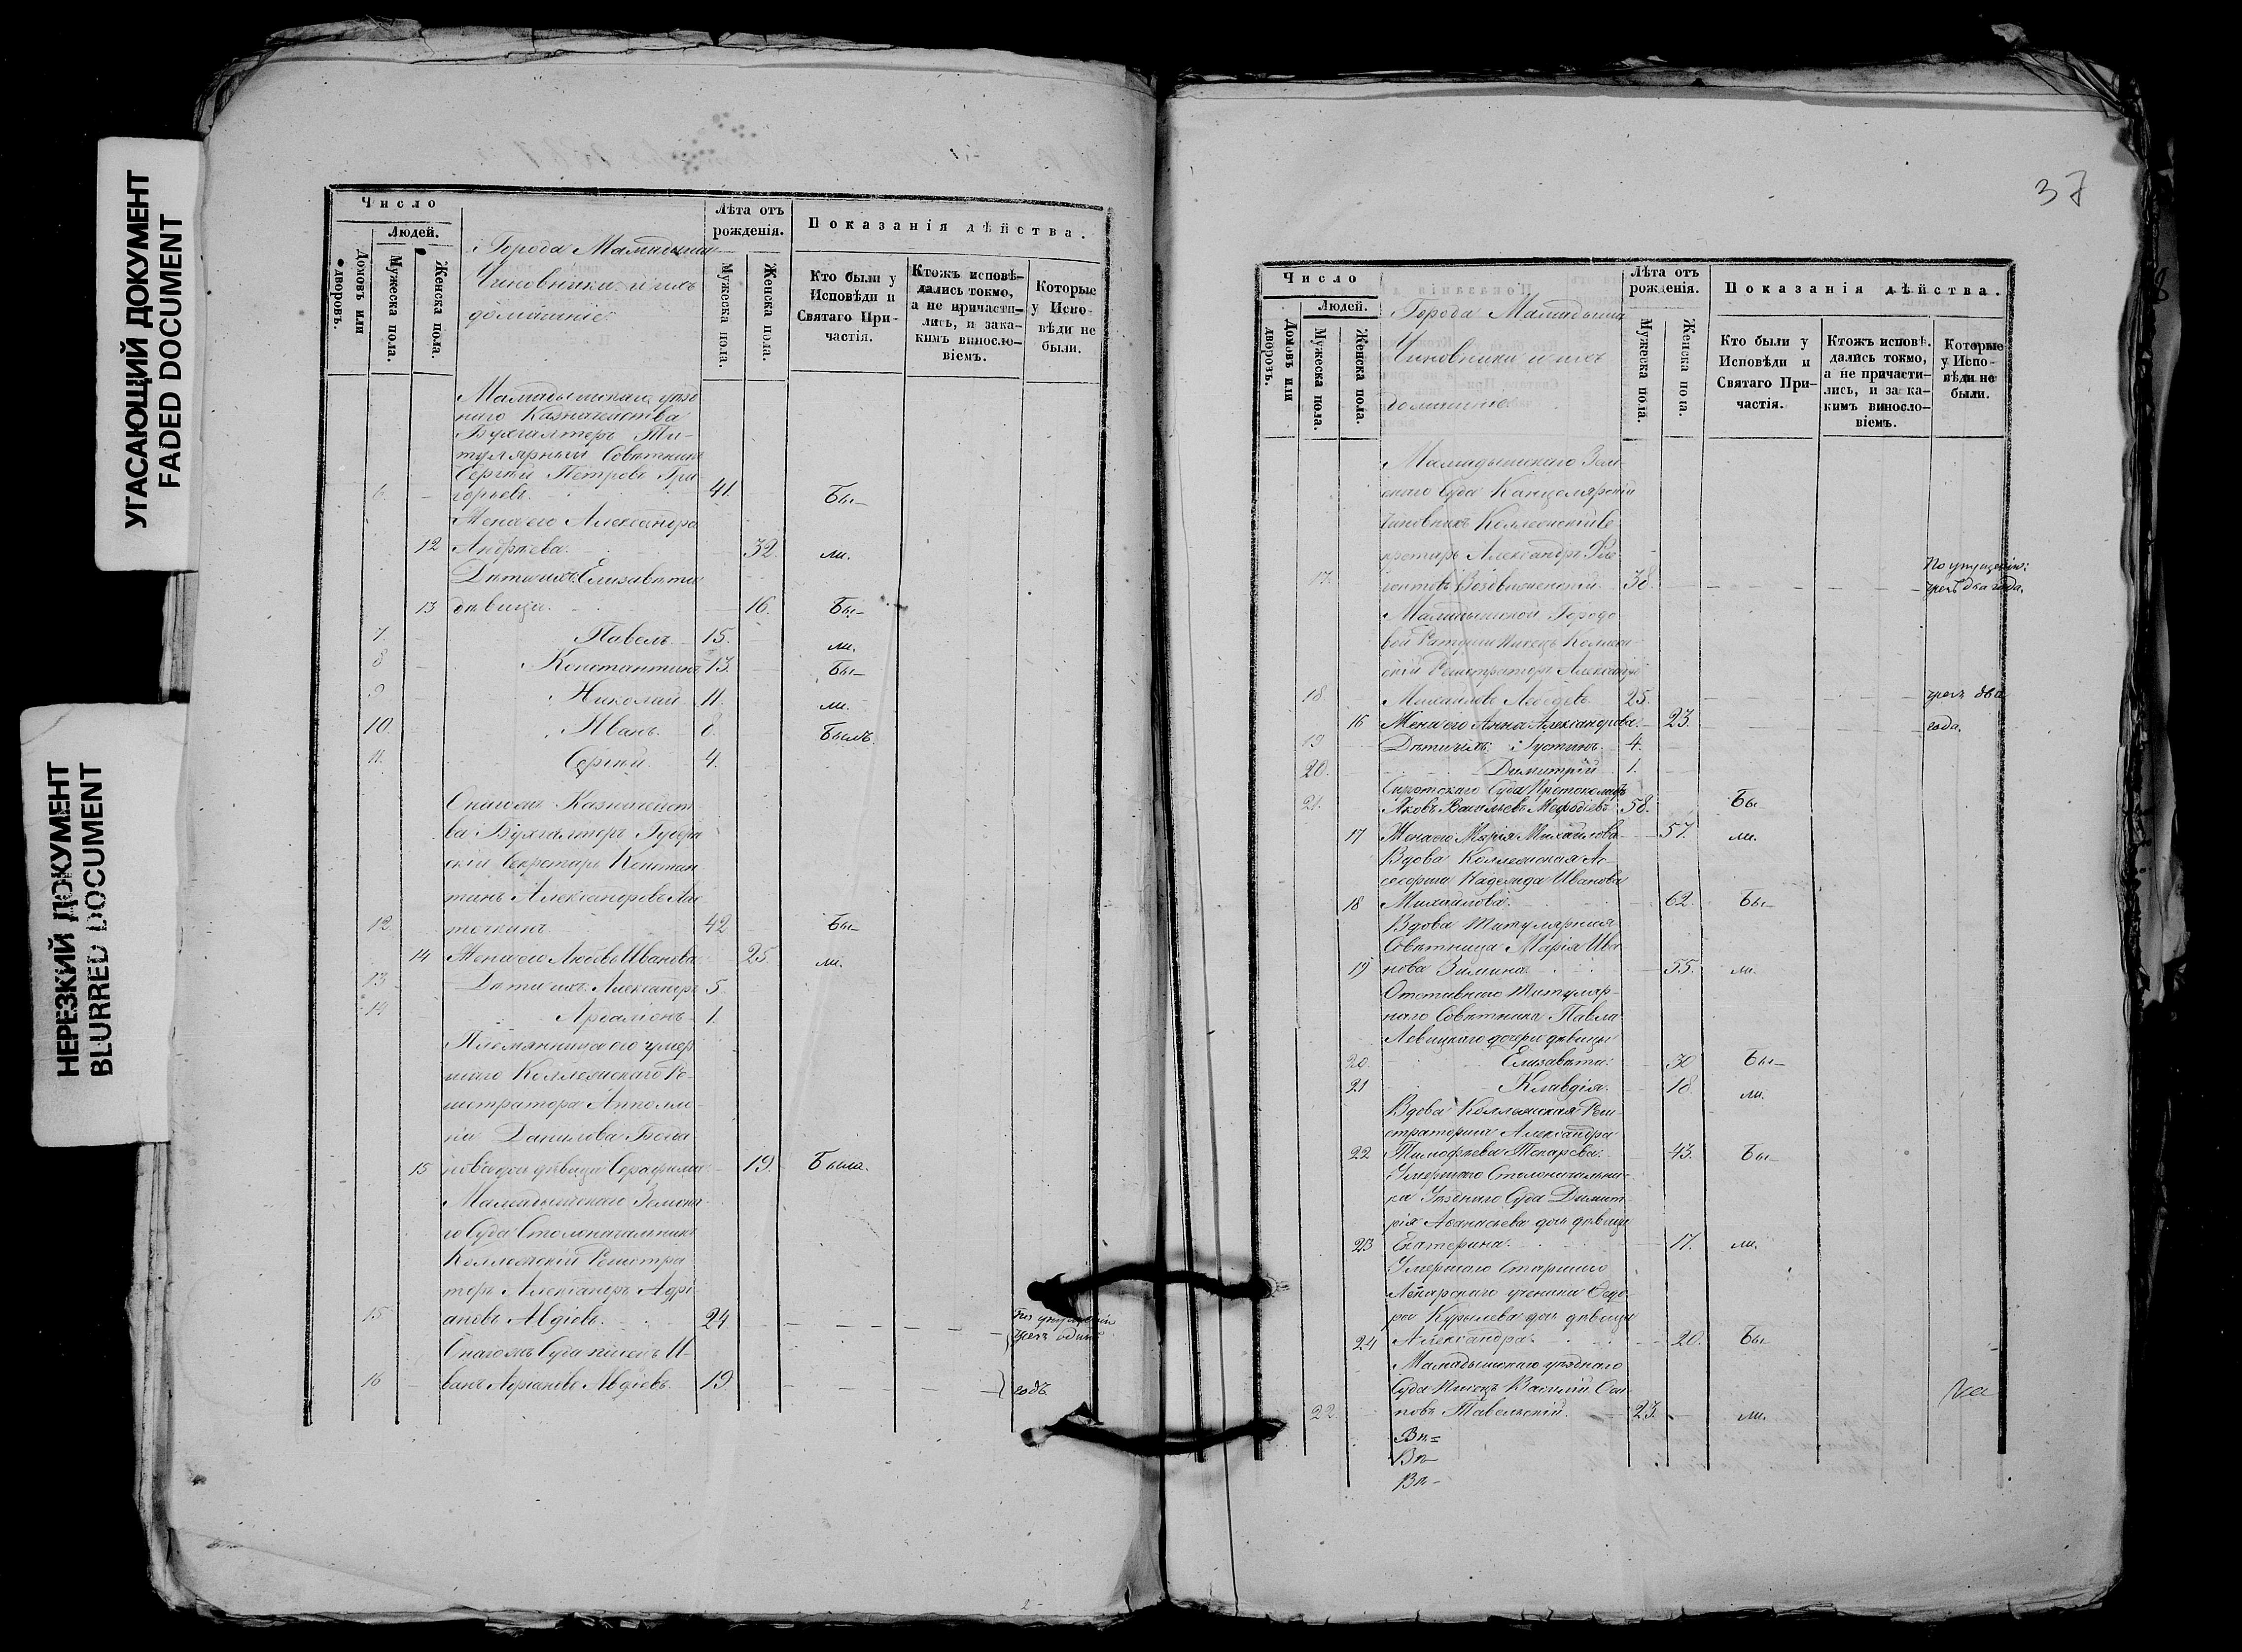 УГАСАЮЩИЙ ДОКУМЕНТ
FADED DOCUMENT
НЕРЕЗКИЙ ДОКУМЕНТ
BLURRED DOCUMENT
Число
Людей.
Домовъ или дворовъ.
Мужеска пола.
Женска пола.
Города Мамадыша
Чиновники и ихъ
домашніе
Лѣта отъ рожденія.
Мужеска пола.
Женска пола.
Показанія дѣйства.
Кто были у Исповѣди и Святаго Причастія.
Ктожъ исповѣдались токмо, а не причастились, и за какимъ винословіемъ.
Которые у Исповѣди не были.
Мамадышскаго уѣзд
наго Казначейства
Бухгалтеръ Ти-
тулярный Совѣтникъ
Сергѣй Петровъ Гри
6. горьевъ. 41. Бы-
Жена его Александра
12 Андреева. 32. ли.
Дѣти ихъ: Елизавета
13 дѣвица. 16. Бы-
7. Павелъ 15. ли.
8 Константинъ 13. Бы-
9 Николай 11. ли.
10. Иванъ. 8. Былъ.
11. Сергѣй. 4.
Онагожъ Казначейст
ва Бухгалтеръ Губерн
скій Секретарь Констан
тинъ Александровъ
12. 42 Бы-
14 Жена его Любовь Иванова 25 ли.
13 Дѣти ихъ: Александръ 5
14 1.
Племянница его умер
шаго Коллежскаго Ре-
гистратора
Данилова
15 дочь дѣвица Серафима 19. Была.
Мамадышскаго Земска
го Суда Столоначальникъ
Коллежскій Регистра
торъ Александръ Адрі
15 ановъ Авдіевъ. 24 По упущенію чрезъ одинъ
Онагожъ Суда писецъ И-
16 ванъ Адріановъ Авдіевъ. 19. годъ
37
Число
Людей.
Домовъ или дворовъ.
Мужеска пола.
Женска пола.
Города Мамадыша
Чиновники и ихъ
домашніе
Лѣта отъ рожденія.
Мужеска пола.
Женска пола.
Показанія дѣйства.
Кто были у Исповѣди и Святаго Причастія.
Ктожъ исповѣдались токмо, а не причастились, и за какимъ винословіемъ.
Которые у Исповѣди не были.
Мамадышскаго Зем-
скаго Суда Канцелярскій
Чиновникъ Коллежскій Се
кретарь Александръ Ѳле
17. гонтовъ Воздвиженскій. 38. По упущенію: чрезъ два года.
Мамадышской Городо
вой Ратуши Писецъ Коллеж
скій Регистраторъ Александръ
18 Михайловъ Лебедевъ 25. чрезъ два
16 Жена его Анна Александрова. 23. года.
19 Дѣти ихъ: Іустинъ. 4.
20. Димитрій 1.
Сиротскаго Суда Протоколистъ
21. Яковъ Васильевъ Меѳодіевъ 58. Бы-
17 Жена его Марія Михайлова 57. ли.
Вдова Коллежская Ас-
сесорша Надежда Иванова
18 Михайлова. 62. Бы-
Вдова Титулярная
Совѣтница Марія Ива
19 нова Зимина. 55. ли.
Отставнаго Титуляр-
наго Совѣтника Павла
Левицкаго дочери дѣвицы
20. Елизавета: 30 Бы-
21 Клавдія. 18. ли.
Вдова Коллежская Реги
страторша Александра
22 Тимофеева Токарева: 43. Бы-
Умершаго Столоначальни-
ка Уѣзднаго Суда Димит
рія Аѳанасьева дочь дѣвица
23 Екатерина. 17. ли.
Умершаго Старшаго
Лекарскаго ученика Ѳедо
ра Курылева дочь дѣвица
24 Александра. 20. Бы
Мамадышскаго уѣзднаго
Суда Писецъ Василій Оси
22. повъ Тавельскій. 23. ли.
Вп=
Вп-
Вп-